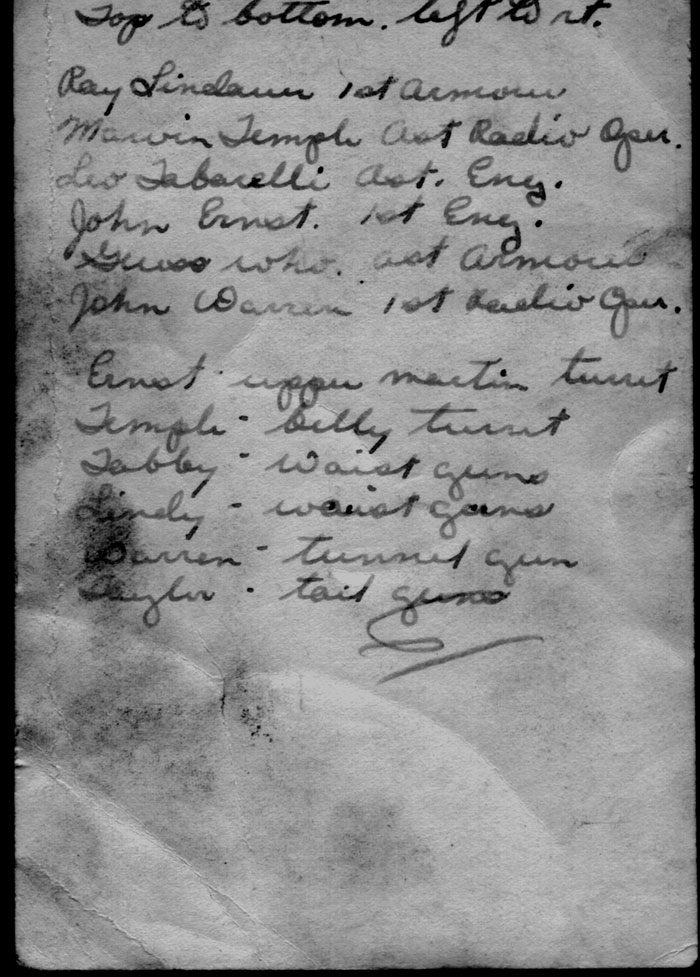 Top to bottom. left to rt.
Ray Lindauer 1st Armour
Marvin Temple Ast Radio Oper.
Leo Tabarelli Ast. Eng.
John Ernst. 1st Eng.
Guess who. ast Armour
John Warren 1st Radio Oper.
Ernst upper martin turret
Temple - belly turret
Tabby - waist guns
Lindy - waist guns
Warren - tunnel gun
Taylor - tail guns